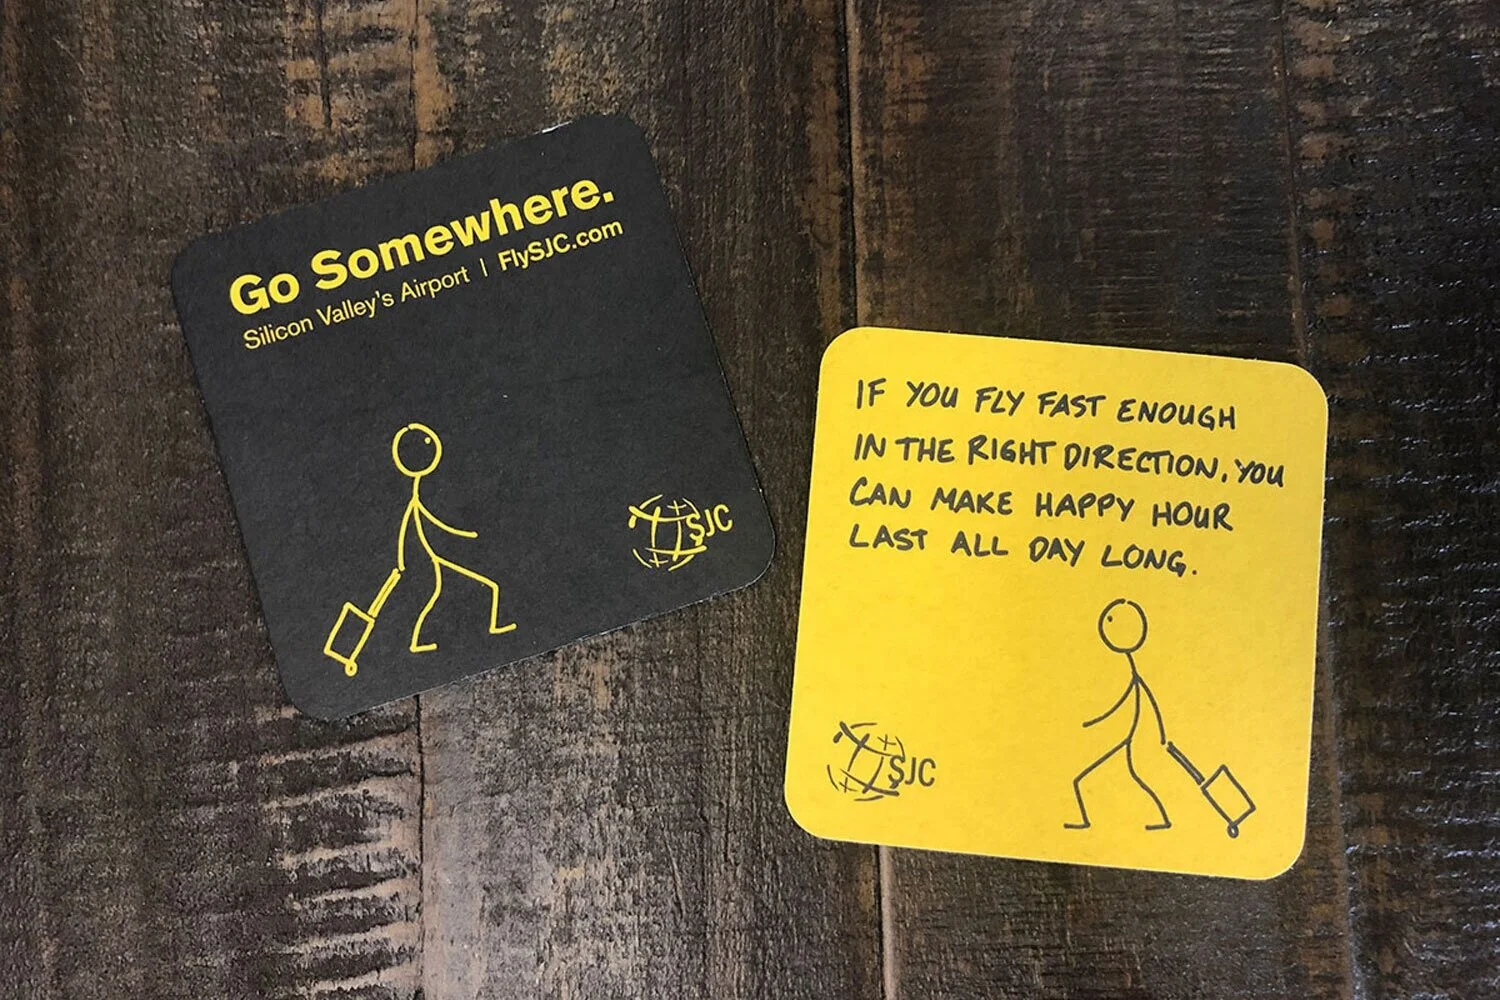 Go Somewhere.
Silicon Valley's Airport | FlySJC.com
SJC
IF YOU FLY FAST ENOUGH
IN THE RIGHT DIRECTION, YOU
CAN MAKE HAPPY HOUR
LAST ALL DAY LONG.
SJC